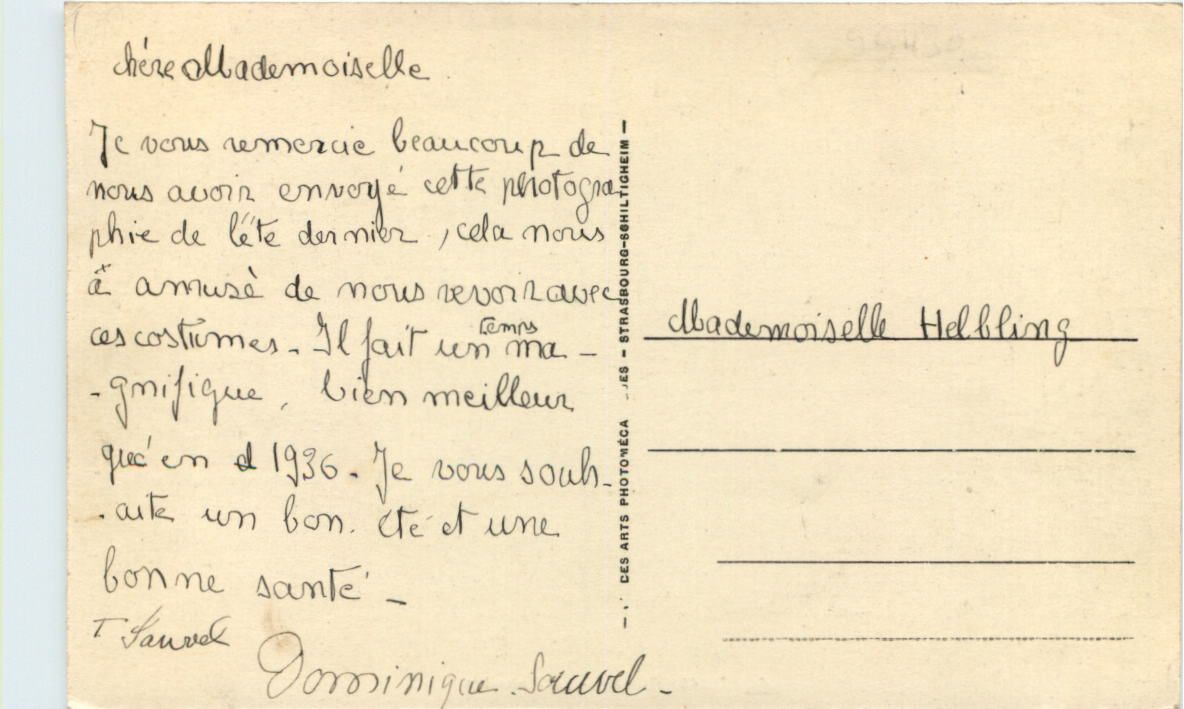 chère Mademoiselle
Je vous remercie beaucoup de
nous avoir envoyé cette photogra
phie de l'été dernier, cela nous
a amusé de nous revoir avec
ces costumes. Il fait un temps ma-
-gnifique, bien meilleur
qu'en 1936. Je vous souh-
-aite un bon été et une
bonne santé -
T Sauvel
Dominique Sauvel -
DES ARTS PHOTOMÉCA ES - STRASBOURG-SCHILTIGHEIM -
Mademoiselle Helbling